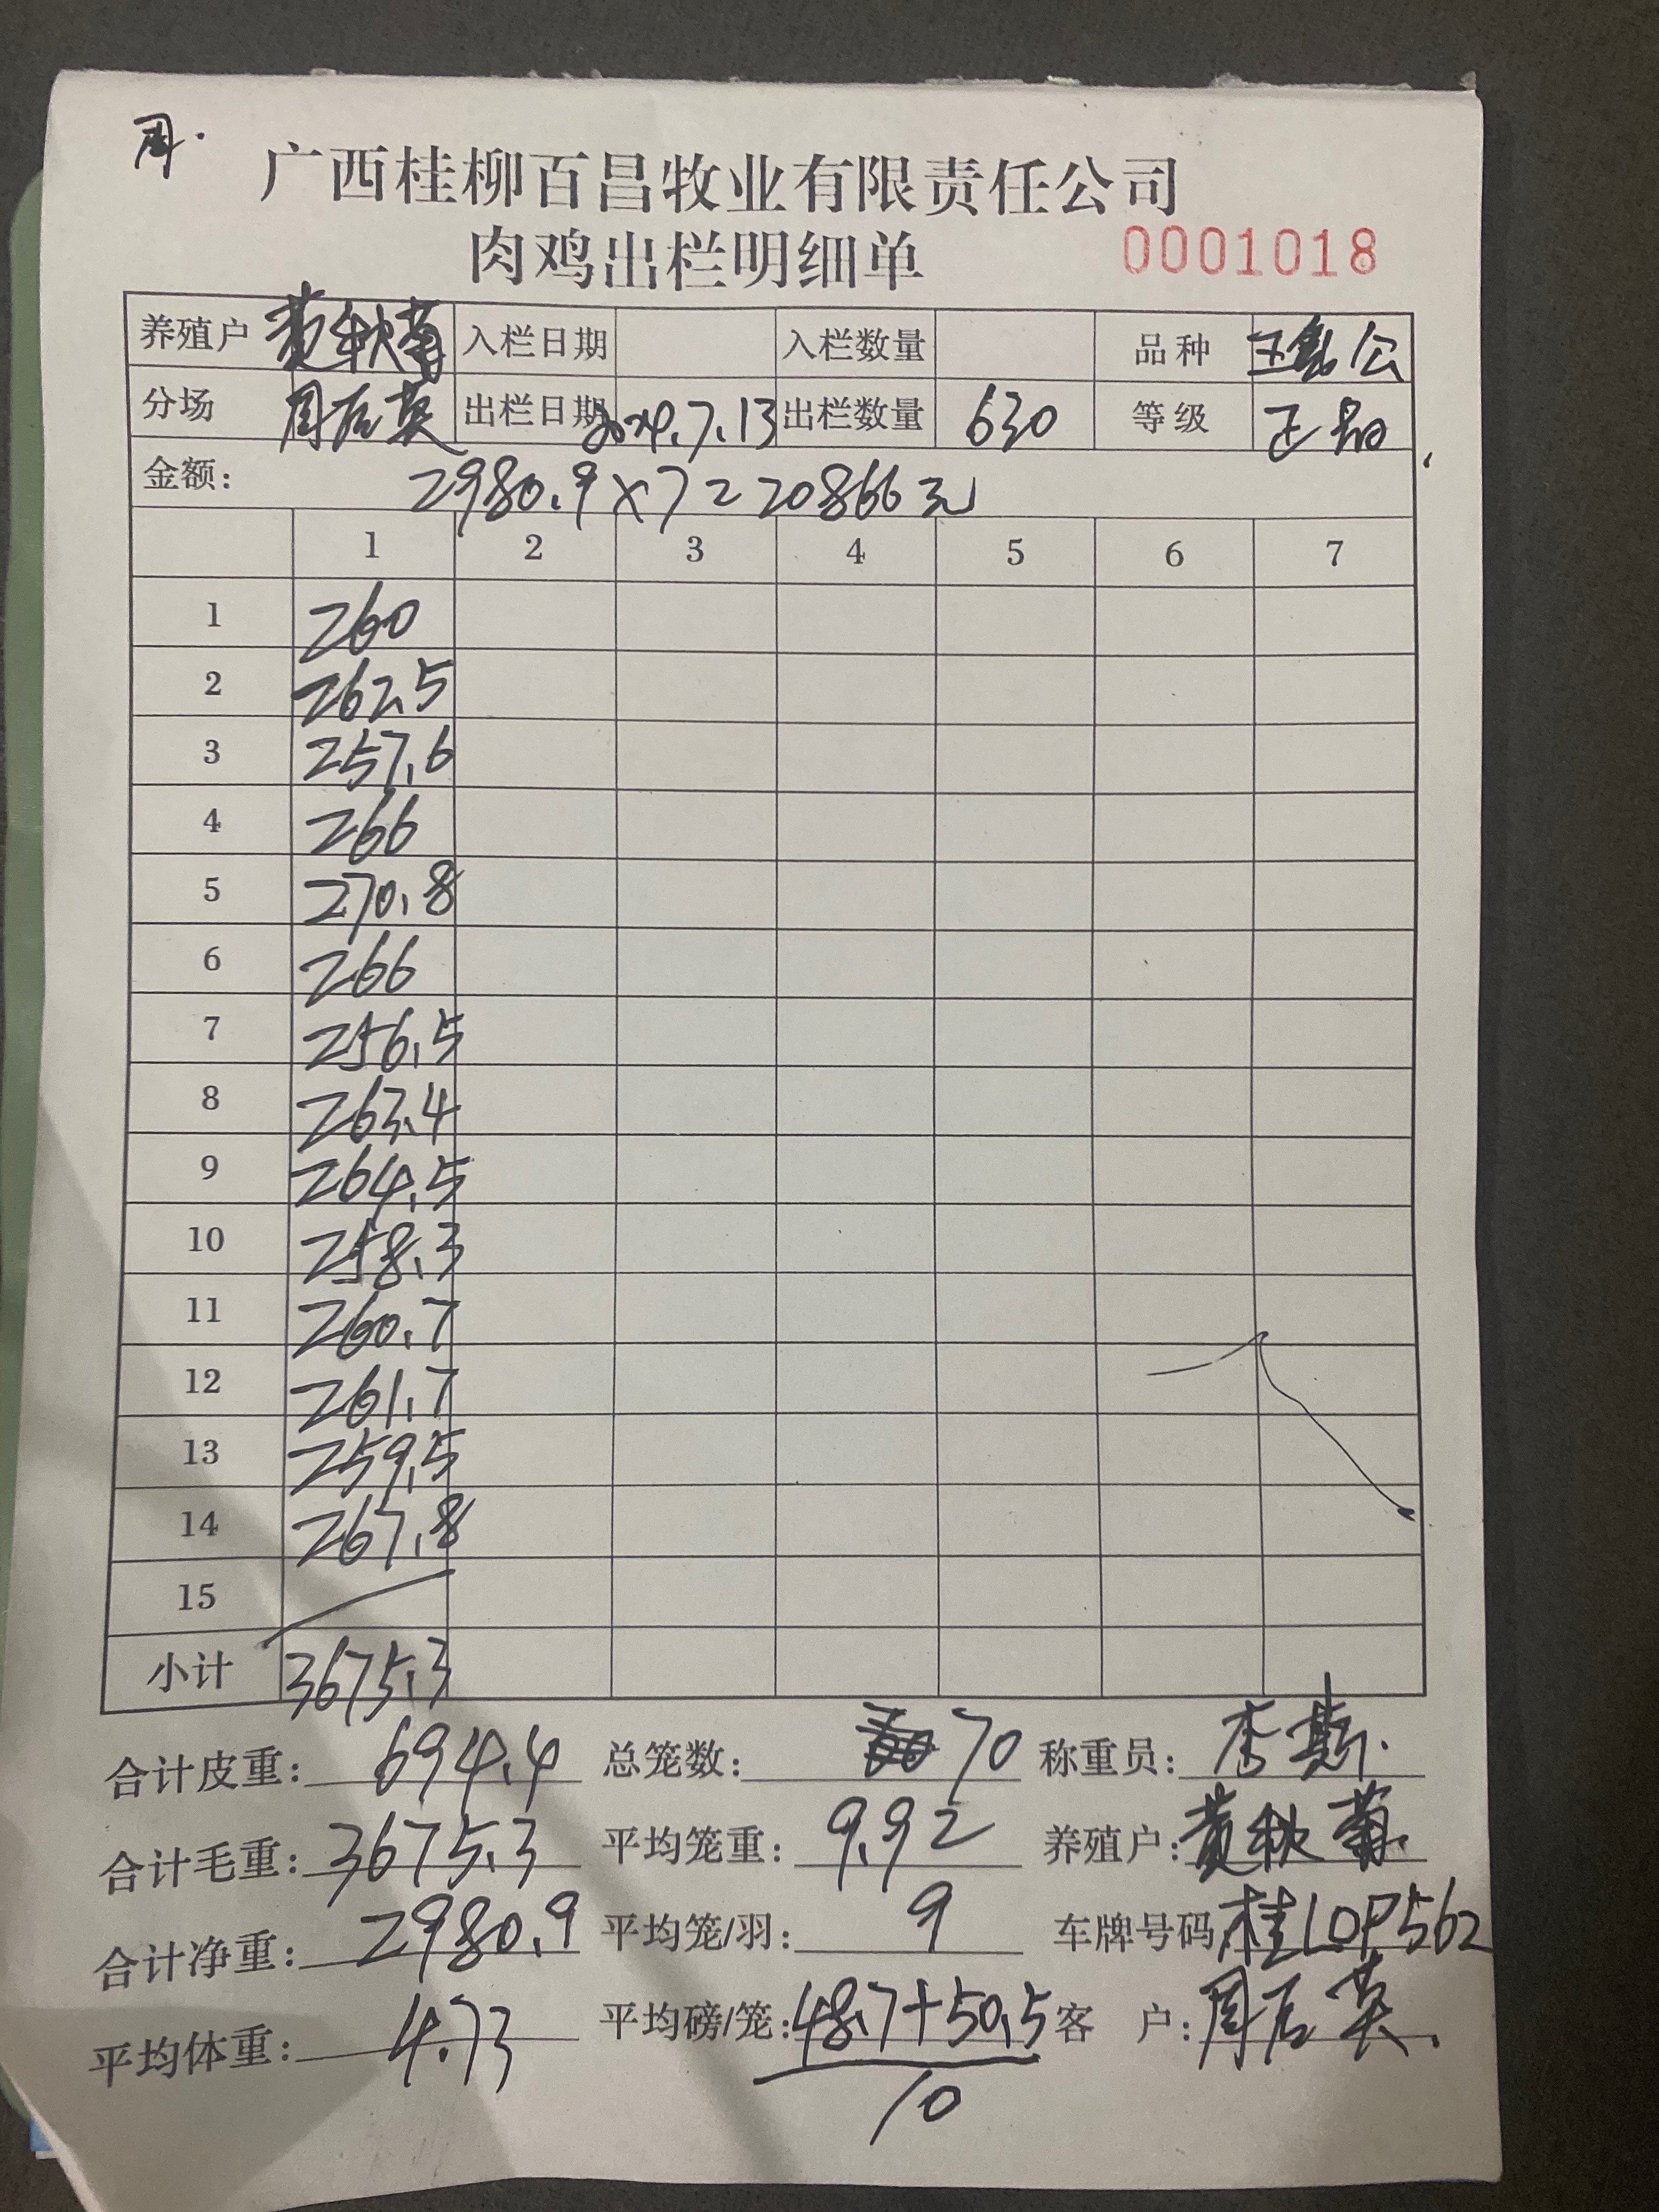 周.
广西桂柳百昌牧业有限责任公司
肉鸡出栏明细单 0001018
养殖户 黄秋菊 入栏日期 入栏数量 品种 公
分场 周后英 出栏日期 2024.7.13 出栏数量 630 等级 正品
金额: 2980.9×7=20866元
1 2 3 4 5 6 7
1 260
2 262.5
3 257.6
4 266
5 270.8
6 266
7 256.5
8 263.4
9 264.5
10 258.3
11 260.7
12 261.7
13 259.5
14 267.8
15
小计 3675.3
合计皮重: 694.4 总笼数: 70 称重员: 李
合计毛重: 3675.3 平均笼重: 9.92 养殖户: 黄秋菊.
合计净重: 2980.9 平均笼/羽: 9 车牌号码 桂LDP562
平均体重: 4.73 平均磅/笼: 48.7+50.5 客 户: 周后英.
10